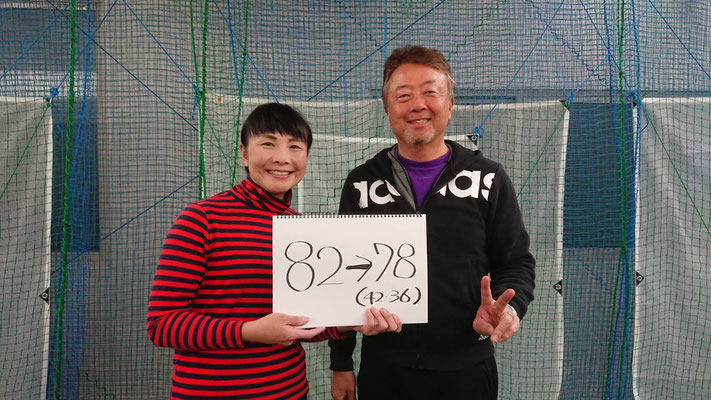 82→78
(42-36)
adidas